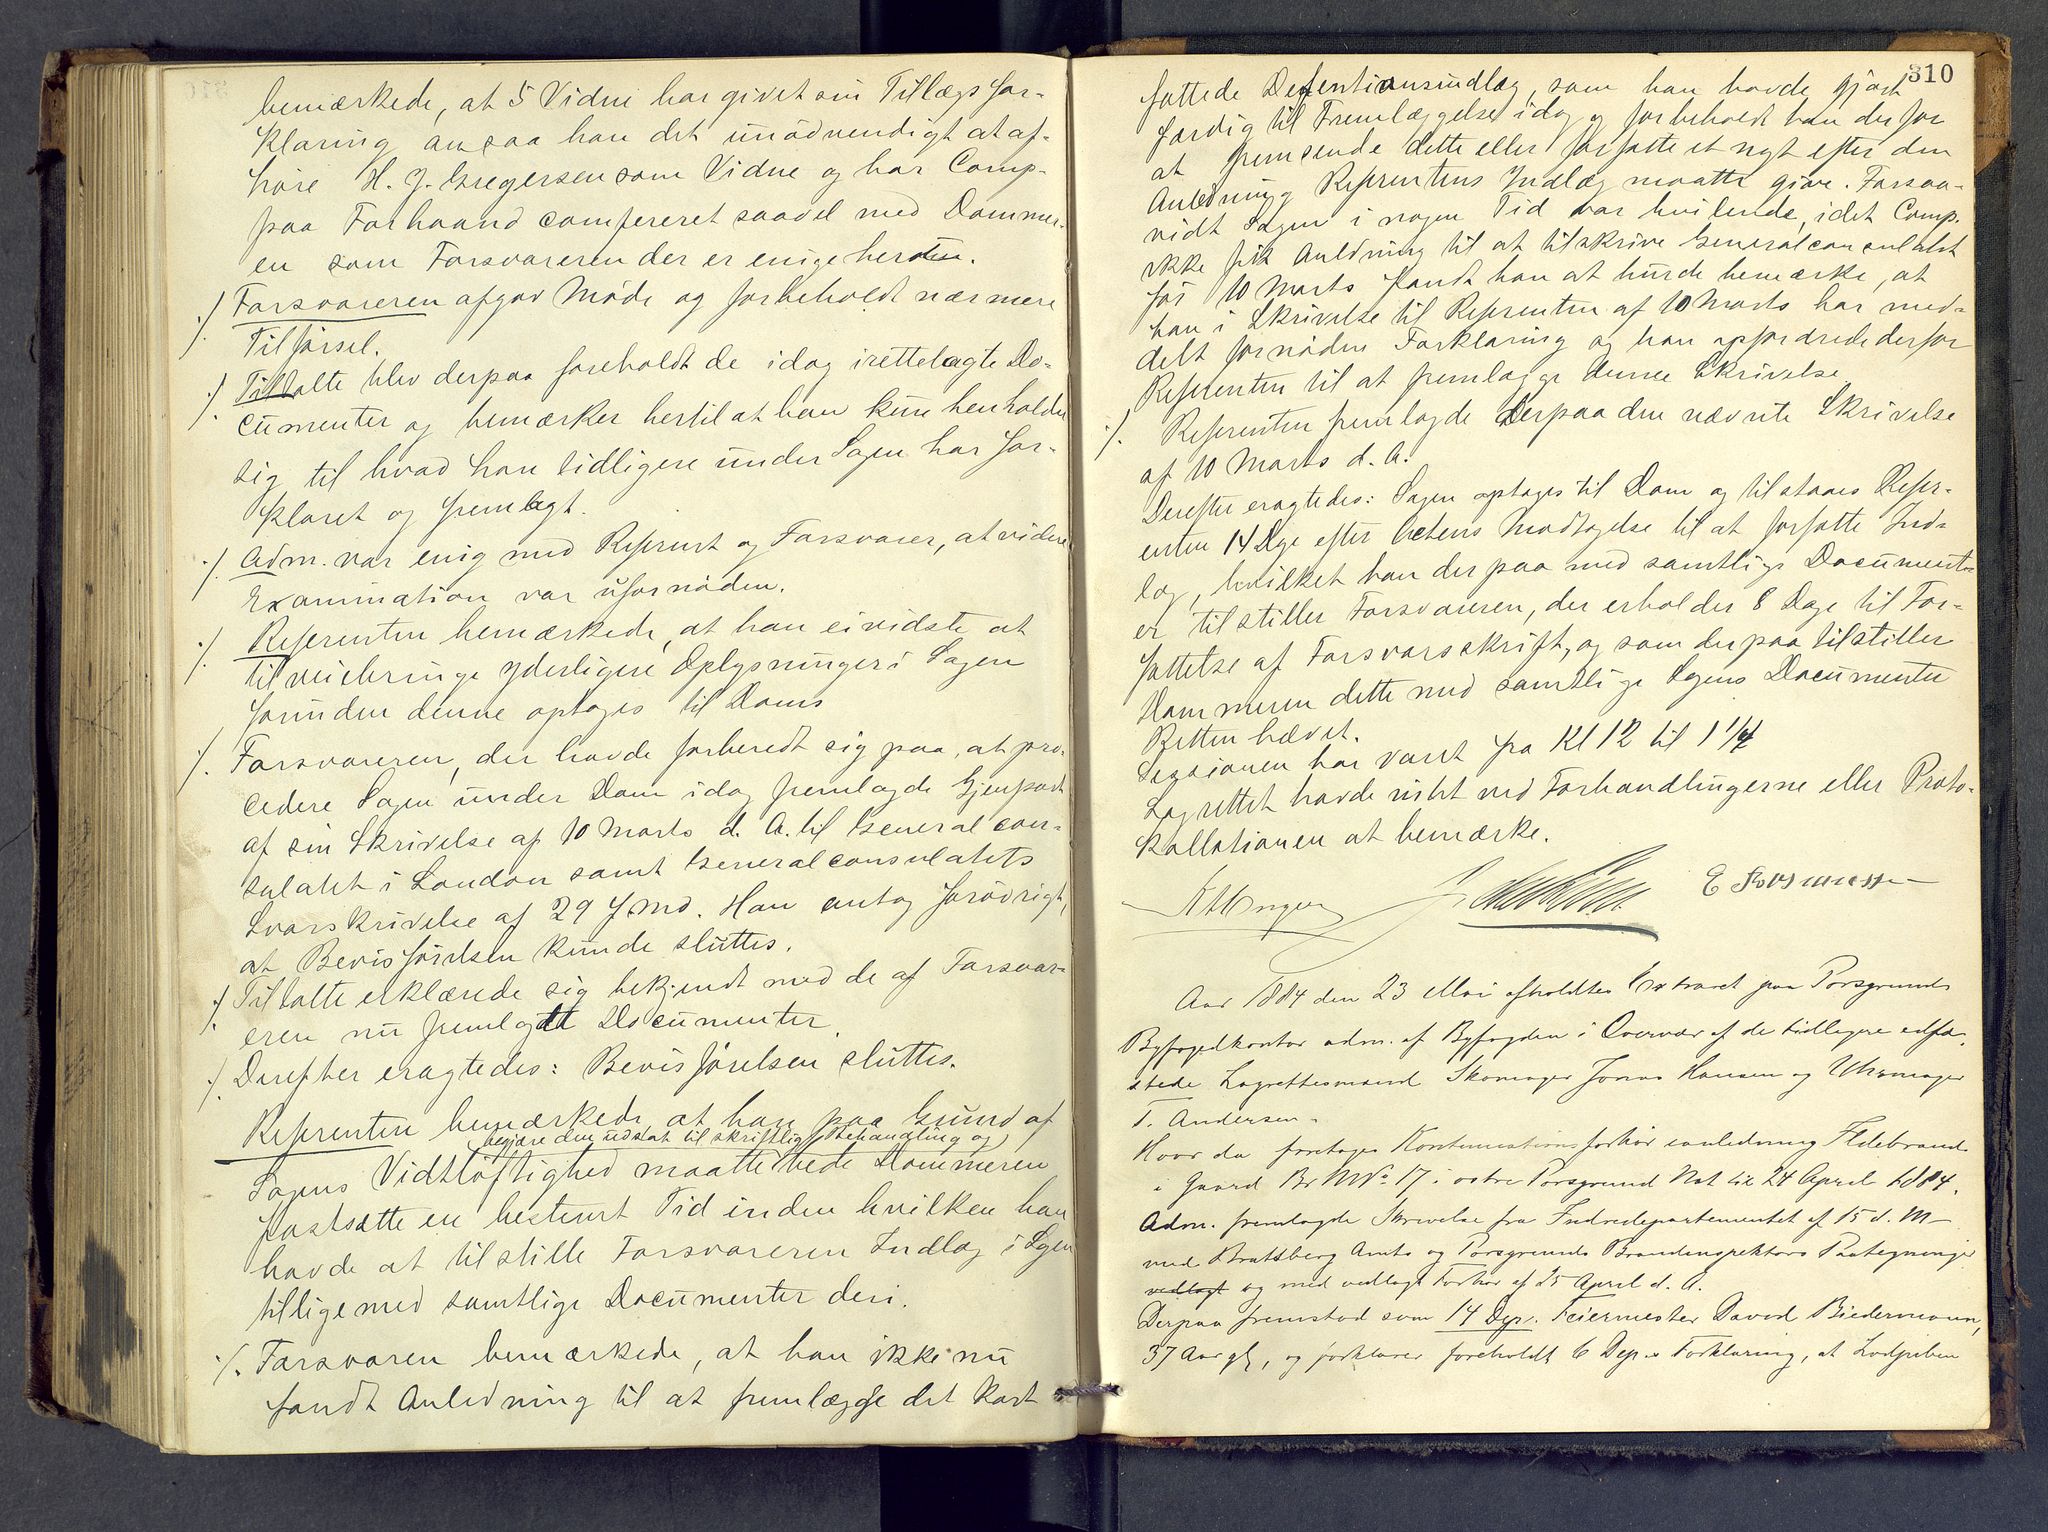 bemærkede, at 5 Vidne har givet sin Tillægsfor-
klaring ansaa han det unödvendigt at af-
höre H. J. Gregersen som Vidne og har Comp.
paa Forhaand confereret saavel med Dommer-
en som Forsvareren der er enige heruden.
./. Forsvareren afgav Möde og forbeholdt nærmere
Tilförsel.
./. Tiltalte blev derpaa foreholdt de idag irettelagte Do-
cumenter og bemærker hertil at han kun henholder
sig til hvad han tidligere under Sagen har for-
klaret og fremlagt.
./. Adm. var enig med Refrent og Forsvarer, at videre
Examination var ufornöden.
./. Refrenten bemærkede, at han ei vidste at
tilveiebringe yderligere Oplysninger i Sagen
forinden denne optages til Doms
./. Forsvareren, der havde forberedt sig paa, at pro-
cedere Sagen under Dom idag fremlagde Gjenpart
af sin Skrivelse af 10 Marts d. A. til Generalcon-
sulatet i London samt Generalconsulatets
Svarskrivelse af 29 f. Md. Han antog forövrigt,
at Bevisförelsen kunde sluttes.
./. Tiltalte erklærede sig bekjendt med de af Forsvar-
eren nu fremlagte Documenter.
./. Derefter eragtedes: Bevisförelsen sluttes.
Refrenten bemærkede at han paa Grund af
begjære den udsat til skriftlig Behandling og
Sagens Vidtlöftighed maatte bede Dommeren
fastsætte en bestemt Tid inden hvilken han
havde at tilstille Forsvareren Indlæg i Sagen
tilligemed samtlige Documenter deri.
./. Forsvaren bemærkede, at han ikke nu
fandt Anledning til at fremlægge det kort
310
fattede Defentionsindlæg, som han havde gjort
færdig til Fremlæggelse idag og forbeholdt han derfor
at fremsende dette eller forfatte et nyt efter den
Anledning Refrentens Indlæg maatte give. Forsaa-
vidt Sagen i nogen Tid var hvilende, idet Comp.
ikke fik Anledning til at tilskrive Generalconsulatet
för 10 Marts fandt han at burde bemærke, at
han i Skrivelse til Refrenten af 10 Marts har med-
delt fornöden Forklaring og han opfordrede derfor
Refrenten til at fremlægge denne Skrivelse
./. Refrenten fremlagde derpaa den nævnte Skrivelse
af 10 Marts d. A.
Derefter eragtedes: Sagen optages til Dom og tilstaaes Refr-
enten 14 Dge efter Actens Modtagelse til at forfatte Ind-
læg, hvilket han derpaa med samtlige Document-
er tilstiller Forsvareren, der erholder 8 Dage til For-
fattelse af Forsvarsskrift, og som derpaa tilstiller
Dommeren dette med samtlige Sagens Documenter
Retten hævet.
Sessionen har varet fra Kl 12 til 1 1/4
Lagrettet havde intet ved Forhandlingerne eller Proto-
kollationen at bemærke.
E Rasmussen
Aar 1884 den 23 Mai afholdtes Extraret paa Porsgrunds
Byfogedkontor adm. af Byfogden i Overvær af de tidligere edfæ-
stede Lagrettesmænd Skomager Jonas Hansen og Uhrmager
T. Andersen.
Hvor da foretoges Kontinuationsforhör i anledning Ildebrand
i Gaard Br M No 17 i östre Porsgrund Nat til 24 April 1884.
Adm. fremlagde Skrivelse fra Indredepartementet af 15 d. M
med Bratsberg Amts og Porsgrunds Brandinspektörs Paategninger
vedlagt og med vedlagt Forhör af 25 April d. A.
Derpaa fremstod som 14 Dep. Feiermester David Biedermann,
37 Aar gl., og forklarer foreholdt 6 Dep.s Forklaring, at Lodpiben